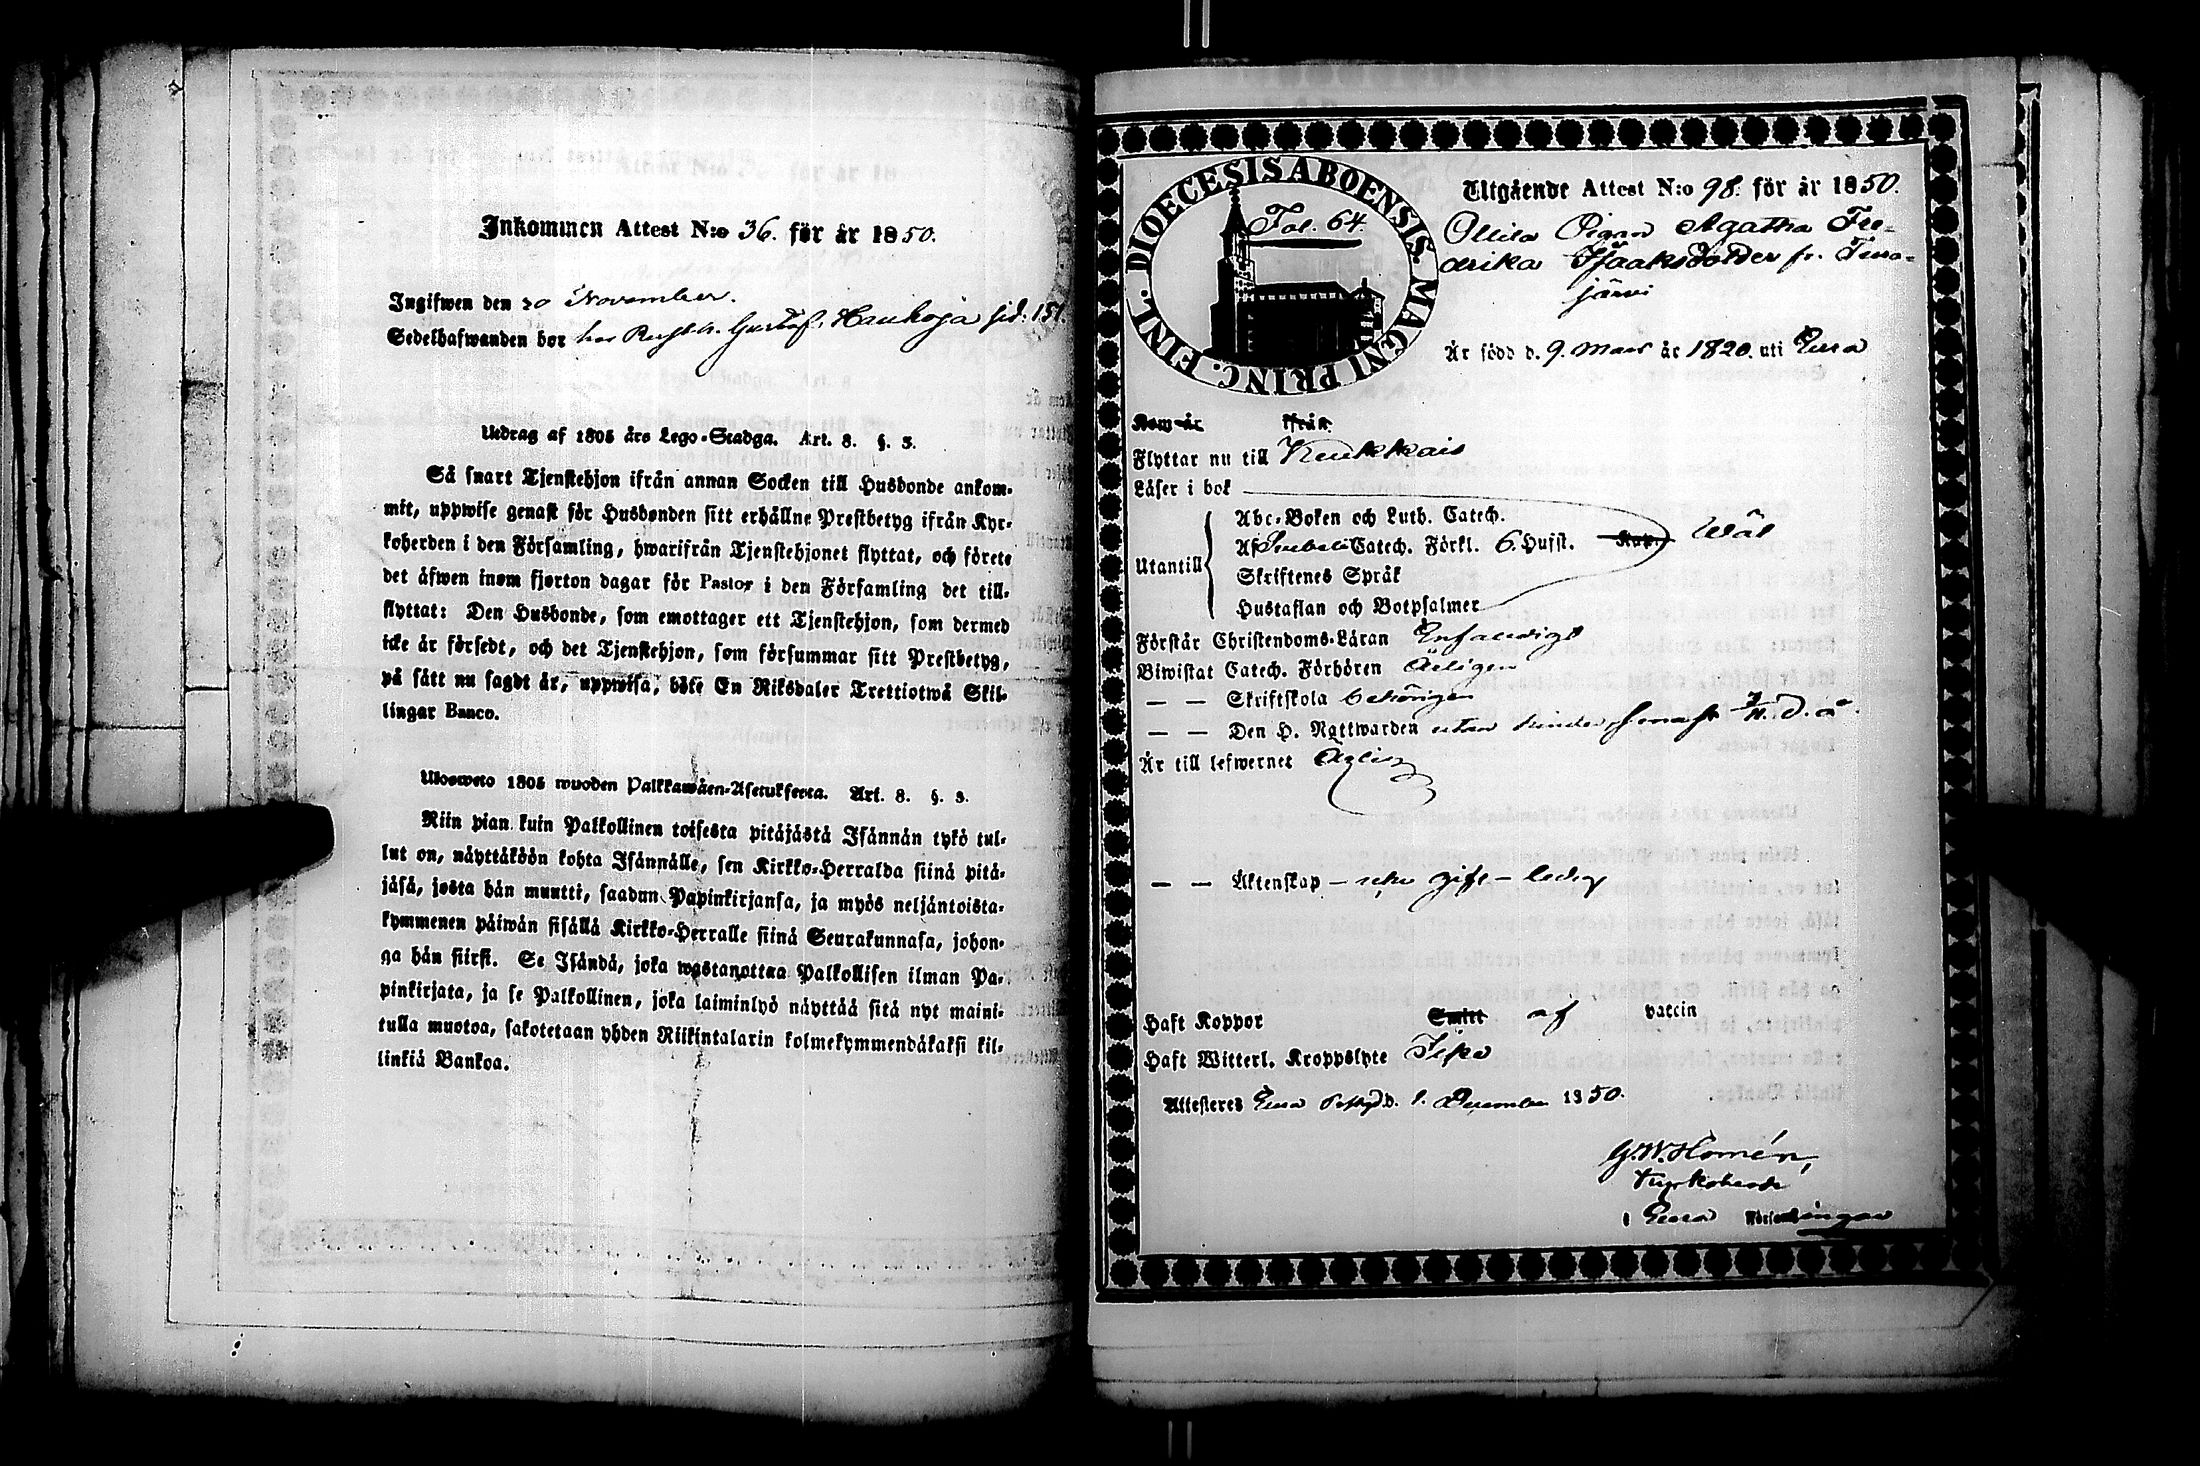 Inkommen Attest N:o 36. för år 1850.
Ingifwen den 20 November.
Sedelhafwanden bor hos Gustaf Haukoja sid: 151.
Utdrag af 1805 års Lego-Stadga. Art. 8. §. 3.
Så snart Tjenstehjon ifrån annan Socken till Husbonde ankom-
mit, uppwise genast för Husbonden sitt erhållne Prestbetyg ifrån Kyr-
koherden i den Församling, hwarifrån Tjenstehjonet flyttat, och förete
det äfwen inom fjorton dagar för Pastor i den Församling det till-
flyttat: Den Husbonde, som emottager ett Tjenstehjon, som dermed
icke är försedt, och det Tjenstehjon, som försummar sitt Prestbetyg,
på sätt nu sagdt är, uppwisa, böte En Riksdaler Trettiotwå Skil-
lingar Banco.
Ulosweto 1805 wuoden Palkkawäen-Asetuksesta. Art. 8. §. 3.
Niin pian kuin Palkollinen toisesta pitäjästä Isännän tykö tul-
lut on, näyttäköön kohta Isännälle, sen Kirkko-Herralda siinä pitä-
jäsä, josta hän muutti, saadun Papinkirjansa, ja myös neljäntoista-
kymmenen päiwän sisällä Kirkko-Herralle siinä Seurakunnasa, johon-
ga hän siirsi. Se Isändä, joka wastanottaa Palkollisen ilman Pa-
pinkirjata, ja se Palkollinen, joka laiminlyö näyttää sitä nyt maini-
tulla muotoa, sakotetaan yhden Riikintalarin kolmekymmendäkaksi kil-
linkiä Bankoa.
DIOECESIS ABOENSIS. MAGNI PRINC. FINL.
Fol. 64.
Utgående Attest N:o 98. för år 1850.
Pigan Agatha Fre-
drika Isaaksdotter fr.
järvi
Är född d. 9. Mars år 1820. uti Eura
Kom är ifrån
Flyttar nu till Keukkais
Läser i bok
Utantill
Abc-Boken och Luth. Catech.
Af Svebeli Catech. Förkl. 6. Hufst. Wäl
Skriftenes Språk
Hustaflan och Botpsalmer
Förstår Christendoms-Läran Enfaldigt
Biwistat Catech. Förhören Årligen
— — Skriftskola behörigen
— — Den H. Nattwarden utan hinder, senast d. å.
Är till lefwernet Ärlig
— — Äktenskap – icke gift – ledig
Haft Koppor Smitt af vaccin
Haft Witterl. Kroppslyte
Attesteres Eura d. 1. December 1850.
G. W. Homén,
Kyrkoherde
i Eura Församlingar